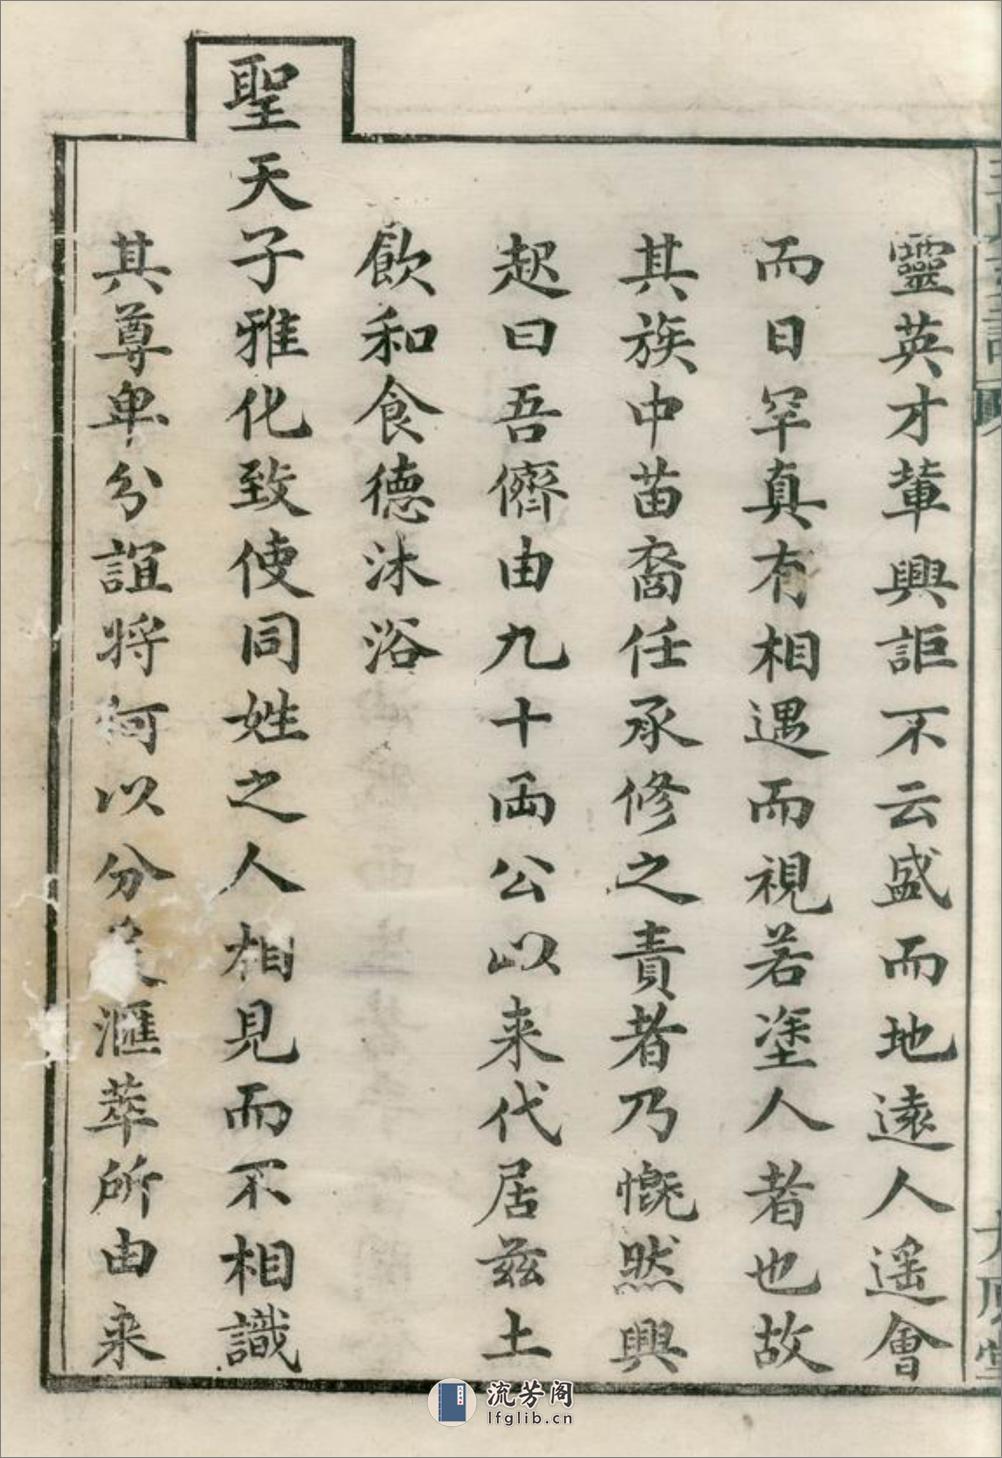 靈英才輩興詎不云盛而地遠人遥會
而日罕真有相遇而視若塗人者也故
其族中苗裔任承修之責者乃慨然興
起曰吾儕由九十両公以来代居兹土
飲和食德沐浴
聖天子雅化致使同姓之人相見而不相識
其尊卑分誼将何以分滙萃所由来
流芳阁
lfglib.cn